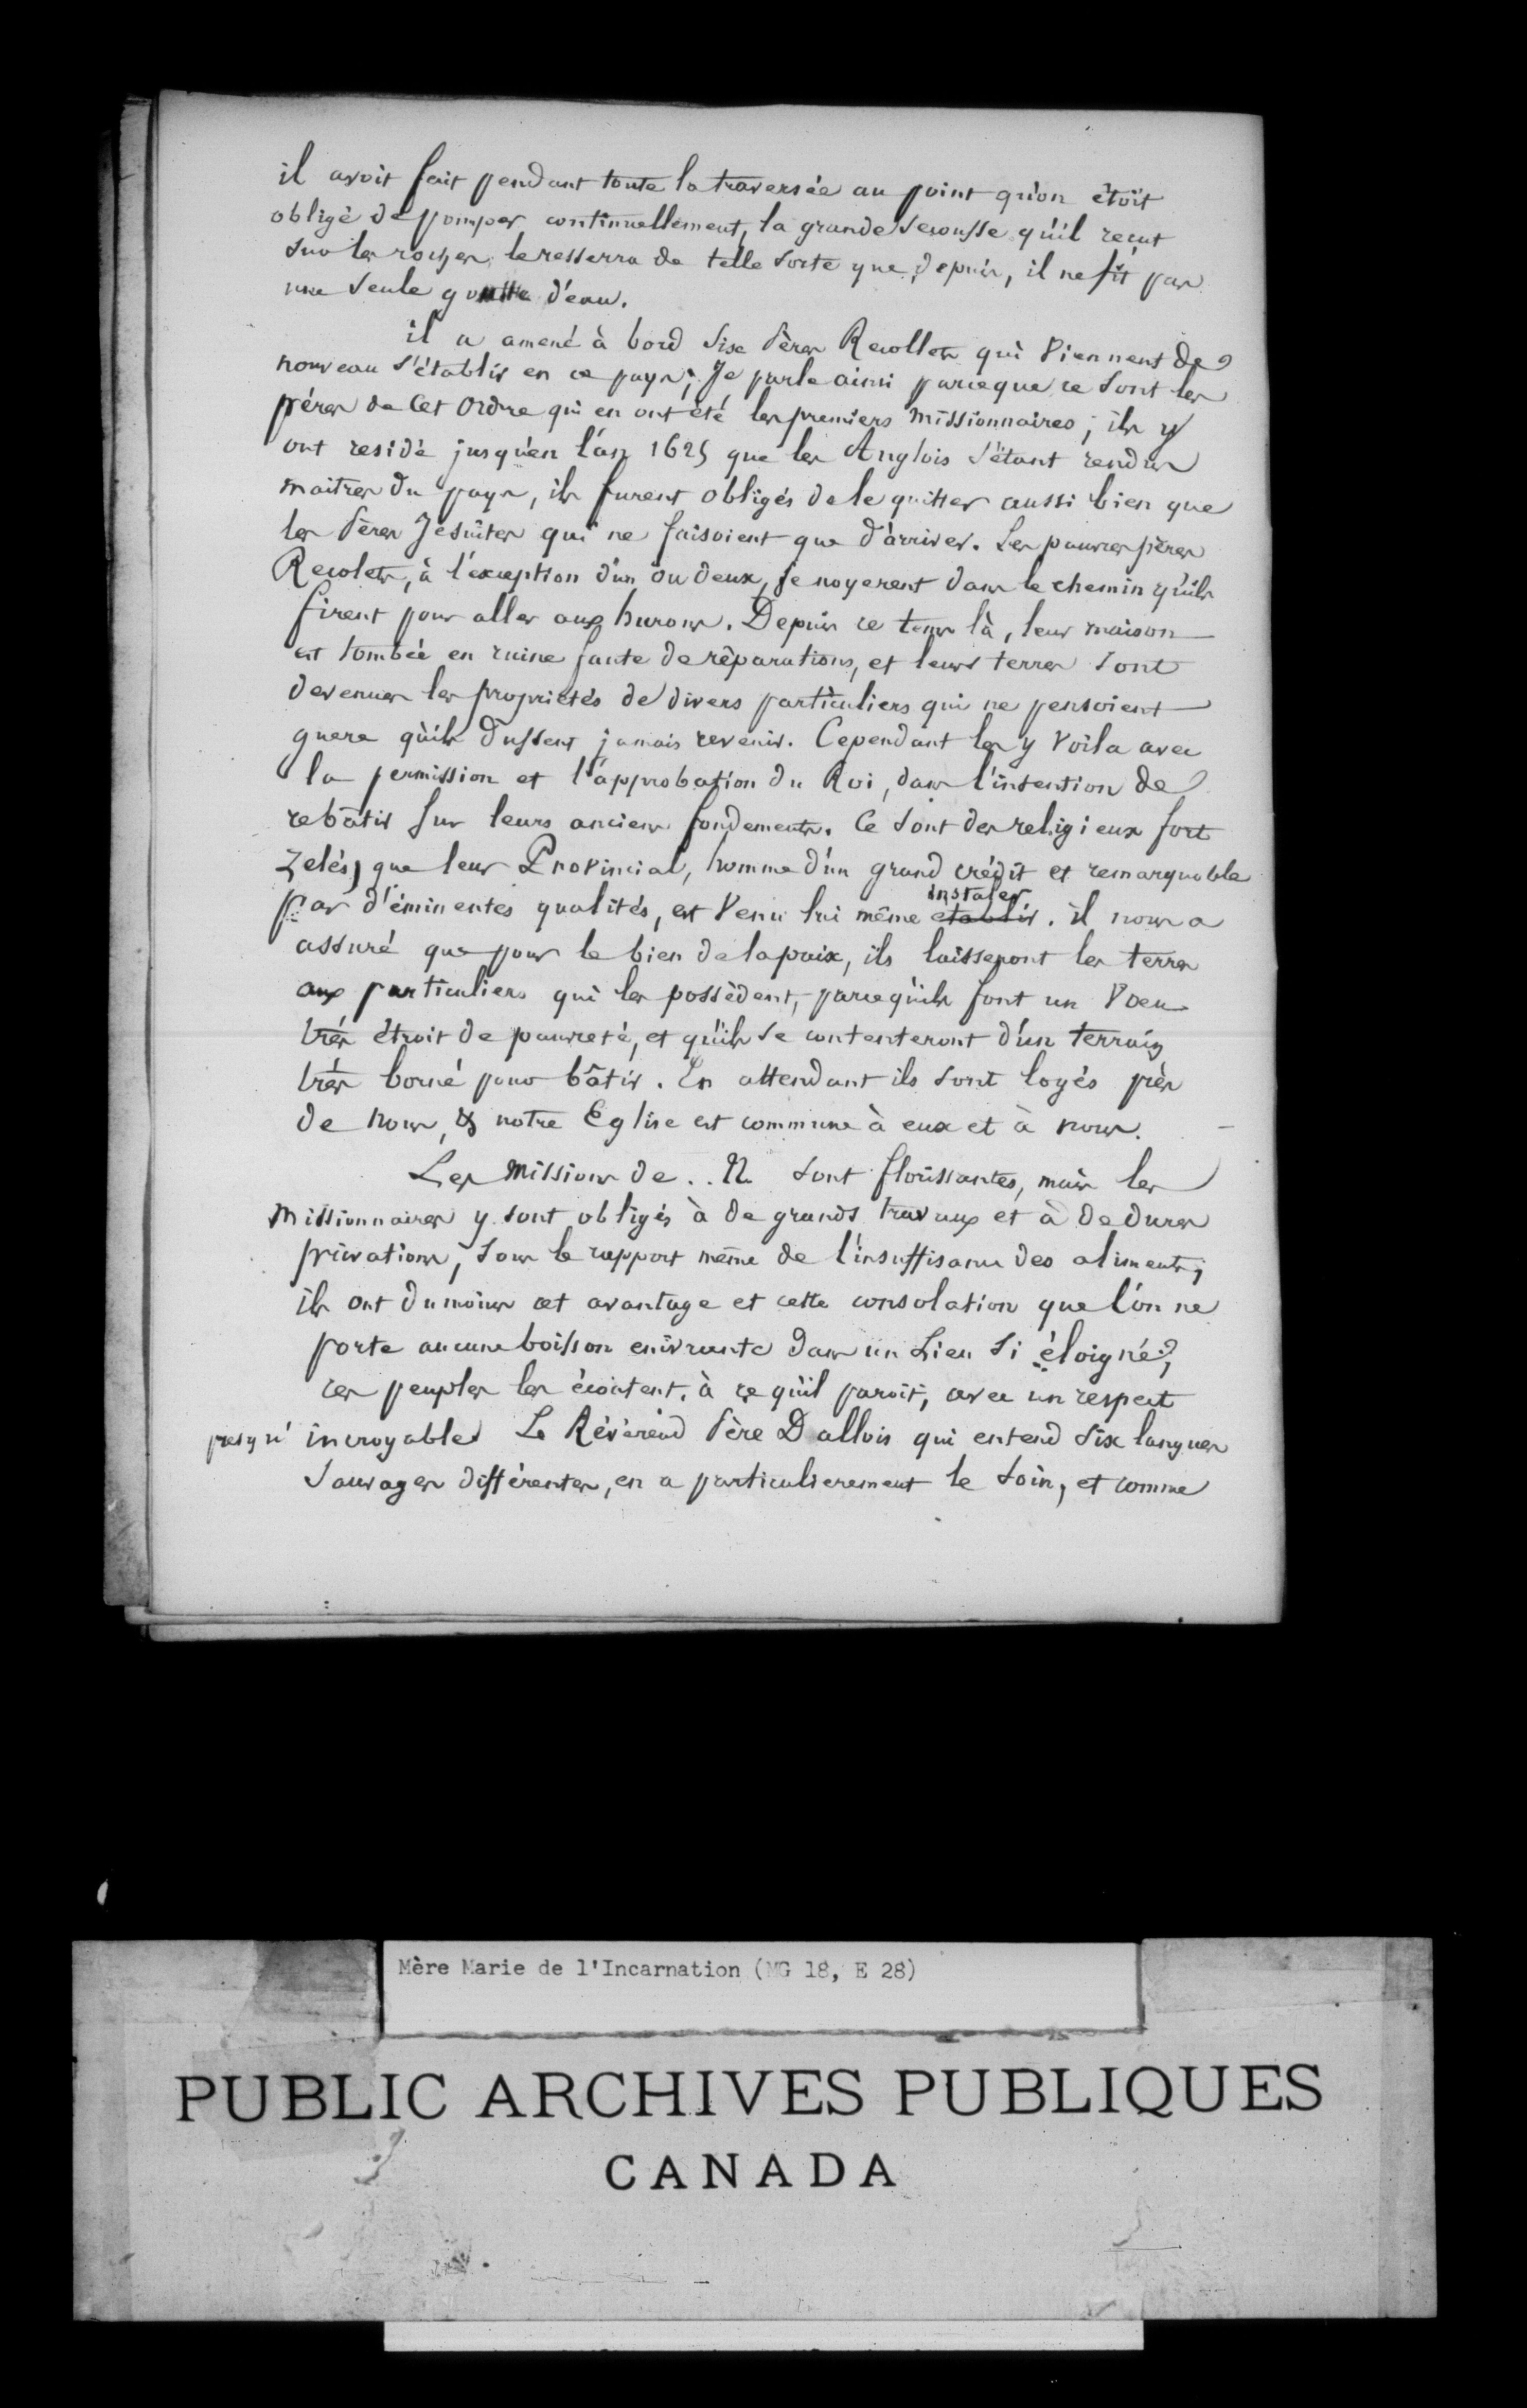 il avoit fait pendant toute la traversée au point qu'on étoit
obligé de pomper continuellement, la grande secousse qu'il reçut
sur les roches le resserra de telle sorte que, depuis, il ne fit pas
une seule goutte d'eau.
il a amené à bord six Pères Recollets qui viennent de
nouveau s'établir en ce pays; Je parle ainsi parceque ce sont les
pères de cet Ordre qui en ont été les premiers missionnaires; ils y
ont residé jusqu'en l'an 1625 que les Anglois s'étant rendus
maitres du pays, ils furent obligés de le quitter aussi bien que
les Pères Jesuites qui ne faisoient que d'arriver. Les pauvres pères
Recolets, à l'exception d'un ou deux, se noyerent dans le chemin qu'ils
firent pour aller aux hurons. Depuis ce tems là, leur maison
est tombée en ruine faute de réparations, et leurs terres sont
devenues les propriétés de divers particuliers qui ne pensoient
guere qu'ils dussent jamais revenir. Cependant les y voila avec
la permission et l'approbation du Roi, dans l'intention de
rebâtir sur leurs anciens fondements. Ce sont des religieux fort
zelés, que leur Provincial, homme d'un grand crédit et remarquable
instaler
par d'éminentes qualités, est venu lui même établir. il nous a
assuré que pour le bien de la paix, ils laisseront les terres
aux particuliers qui les possèdent, parcequ'ils font un voeu
très étroit de pauvreté, et qu'ils se contenteront d'un terrain
très borné pour bâtir. En attendant ils sont logés près
de nous, & notre Eglise est commune à eux et à nous.
Les missions de .. N. sont florissantes, mais les
missionnaires y sont obligés à de grands travaux et à de dures
privations, sous le rapport même de l'insuffisance des aliments;
ils ont du moins cet avantage et cette consolation que l'on ne
porte aucune boisson enivrante dans un Lieu si éloigné;
ces peuples les écoutent, à ce qu'il paroit, avec un respect
presqu' incroyable. Le Révérend Père Dallois qui entend six langues
sauvages différentes, en a particulierement le soin, et comme
Mère Marie de l'Incarnation (MG 18, E 28)
PUBLIC ARCHIVES PUBLIQUES
CANADA